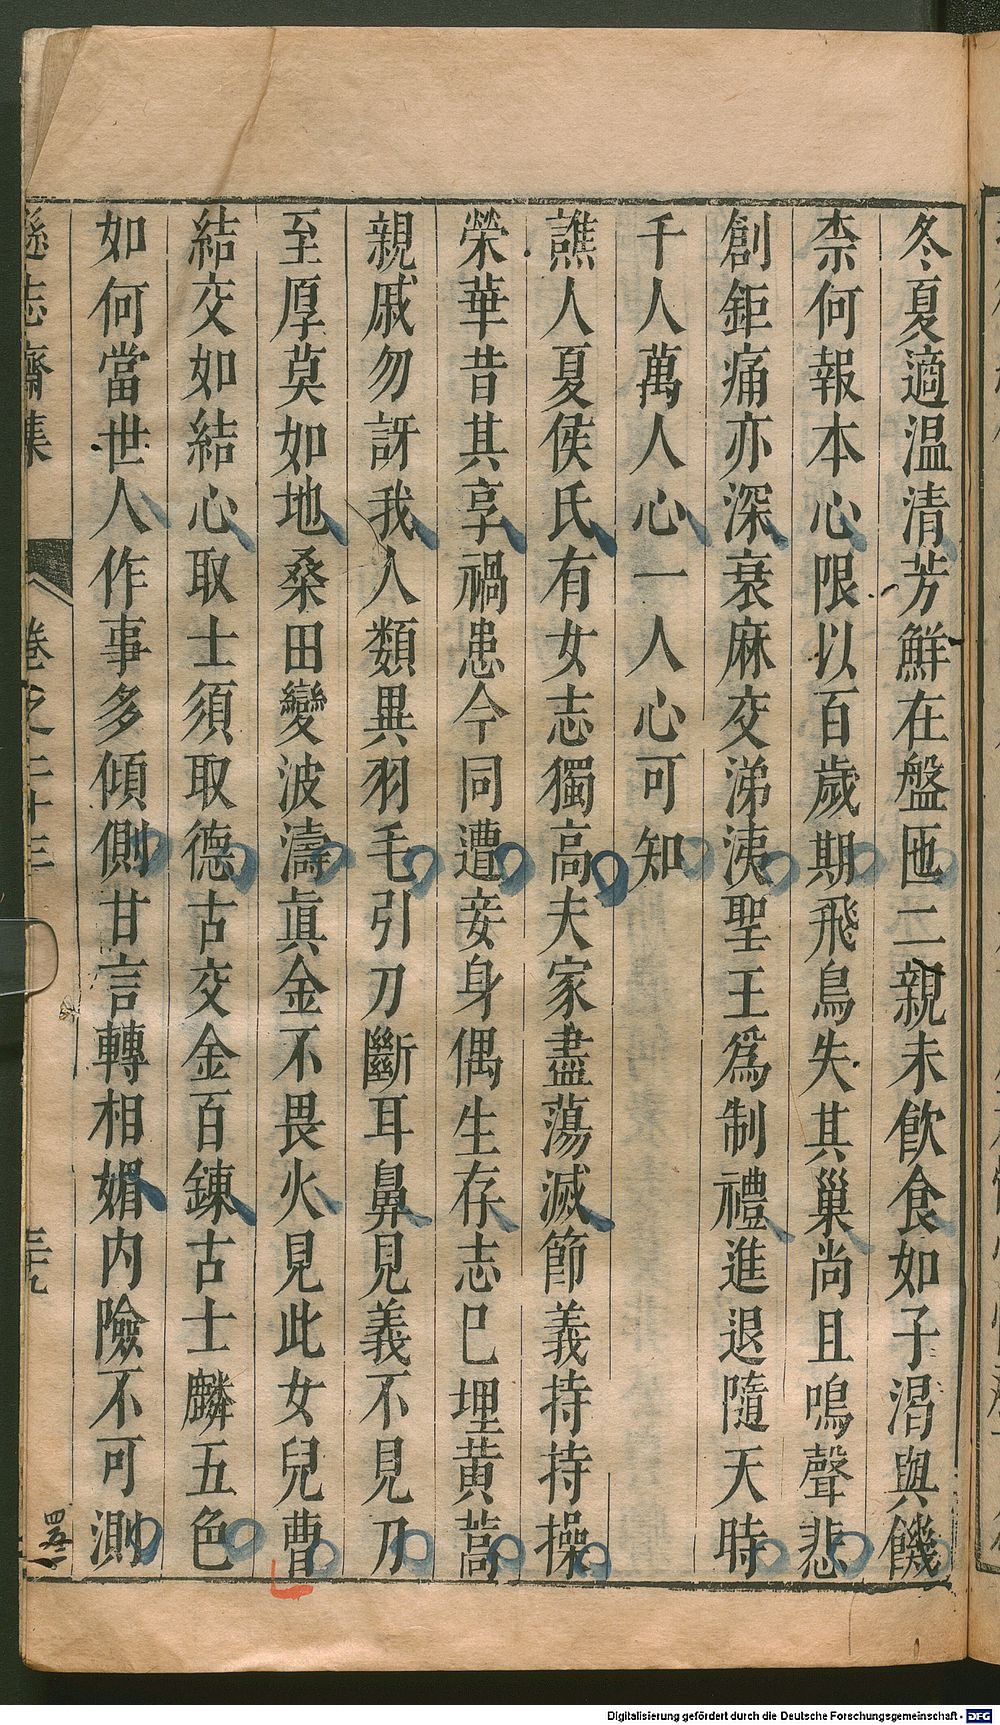 冬夏適温清芳鮮在盤匜二親未飲食如子渴與饑
柰何報本心限以百歲期飛鳥失其巢尚且鳴聲悲
創鉅痛亦深衰麻交涕洟聖王爲制禮進退隨天時
千人萬人心一人心可知
譙人夏侯氏有女志獨高夫家盡蕩滅節義持持操
榮華昔其享禍患今同遭妾身偶生存志已埋黄蒿
親戚勿訝我人類異羽毛引刀斷耳鼻見義不見刀
至厚莫如地桑田變波濤眞金不畏火見此女兒曹
結交如結心取士須取德古交金百鍊古士麟五色
如何當世人作事多傾側甘言轉相媚内險不可測
遜志齋集 卷之二十三 三九
Digitalisierung gefördert durch die Deutsche Forschungsgemeinschaft - DFG